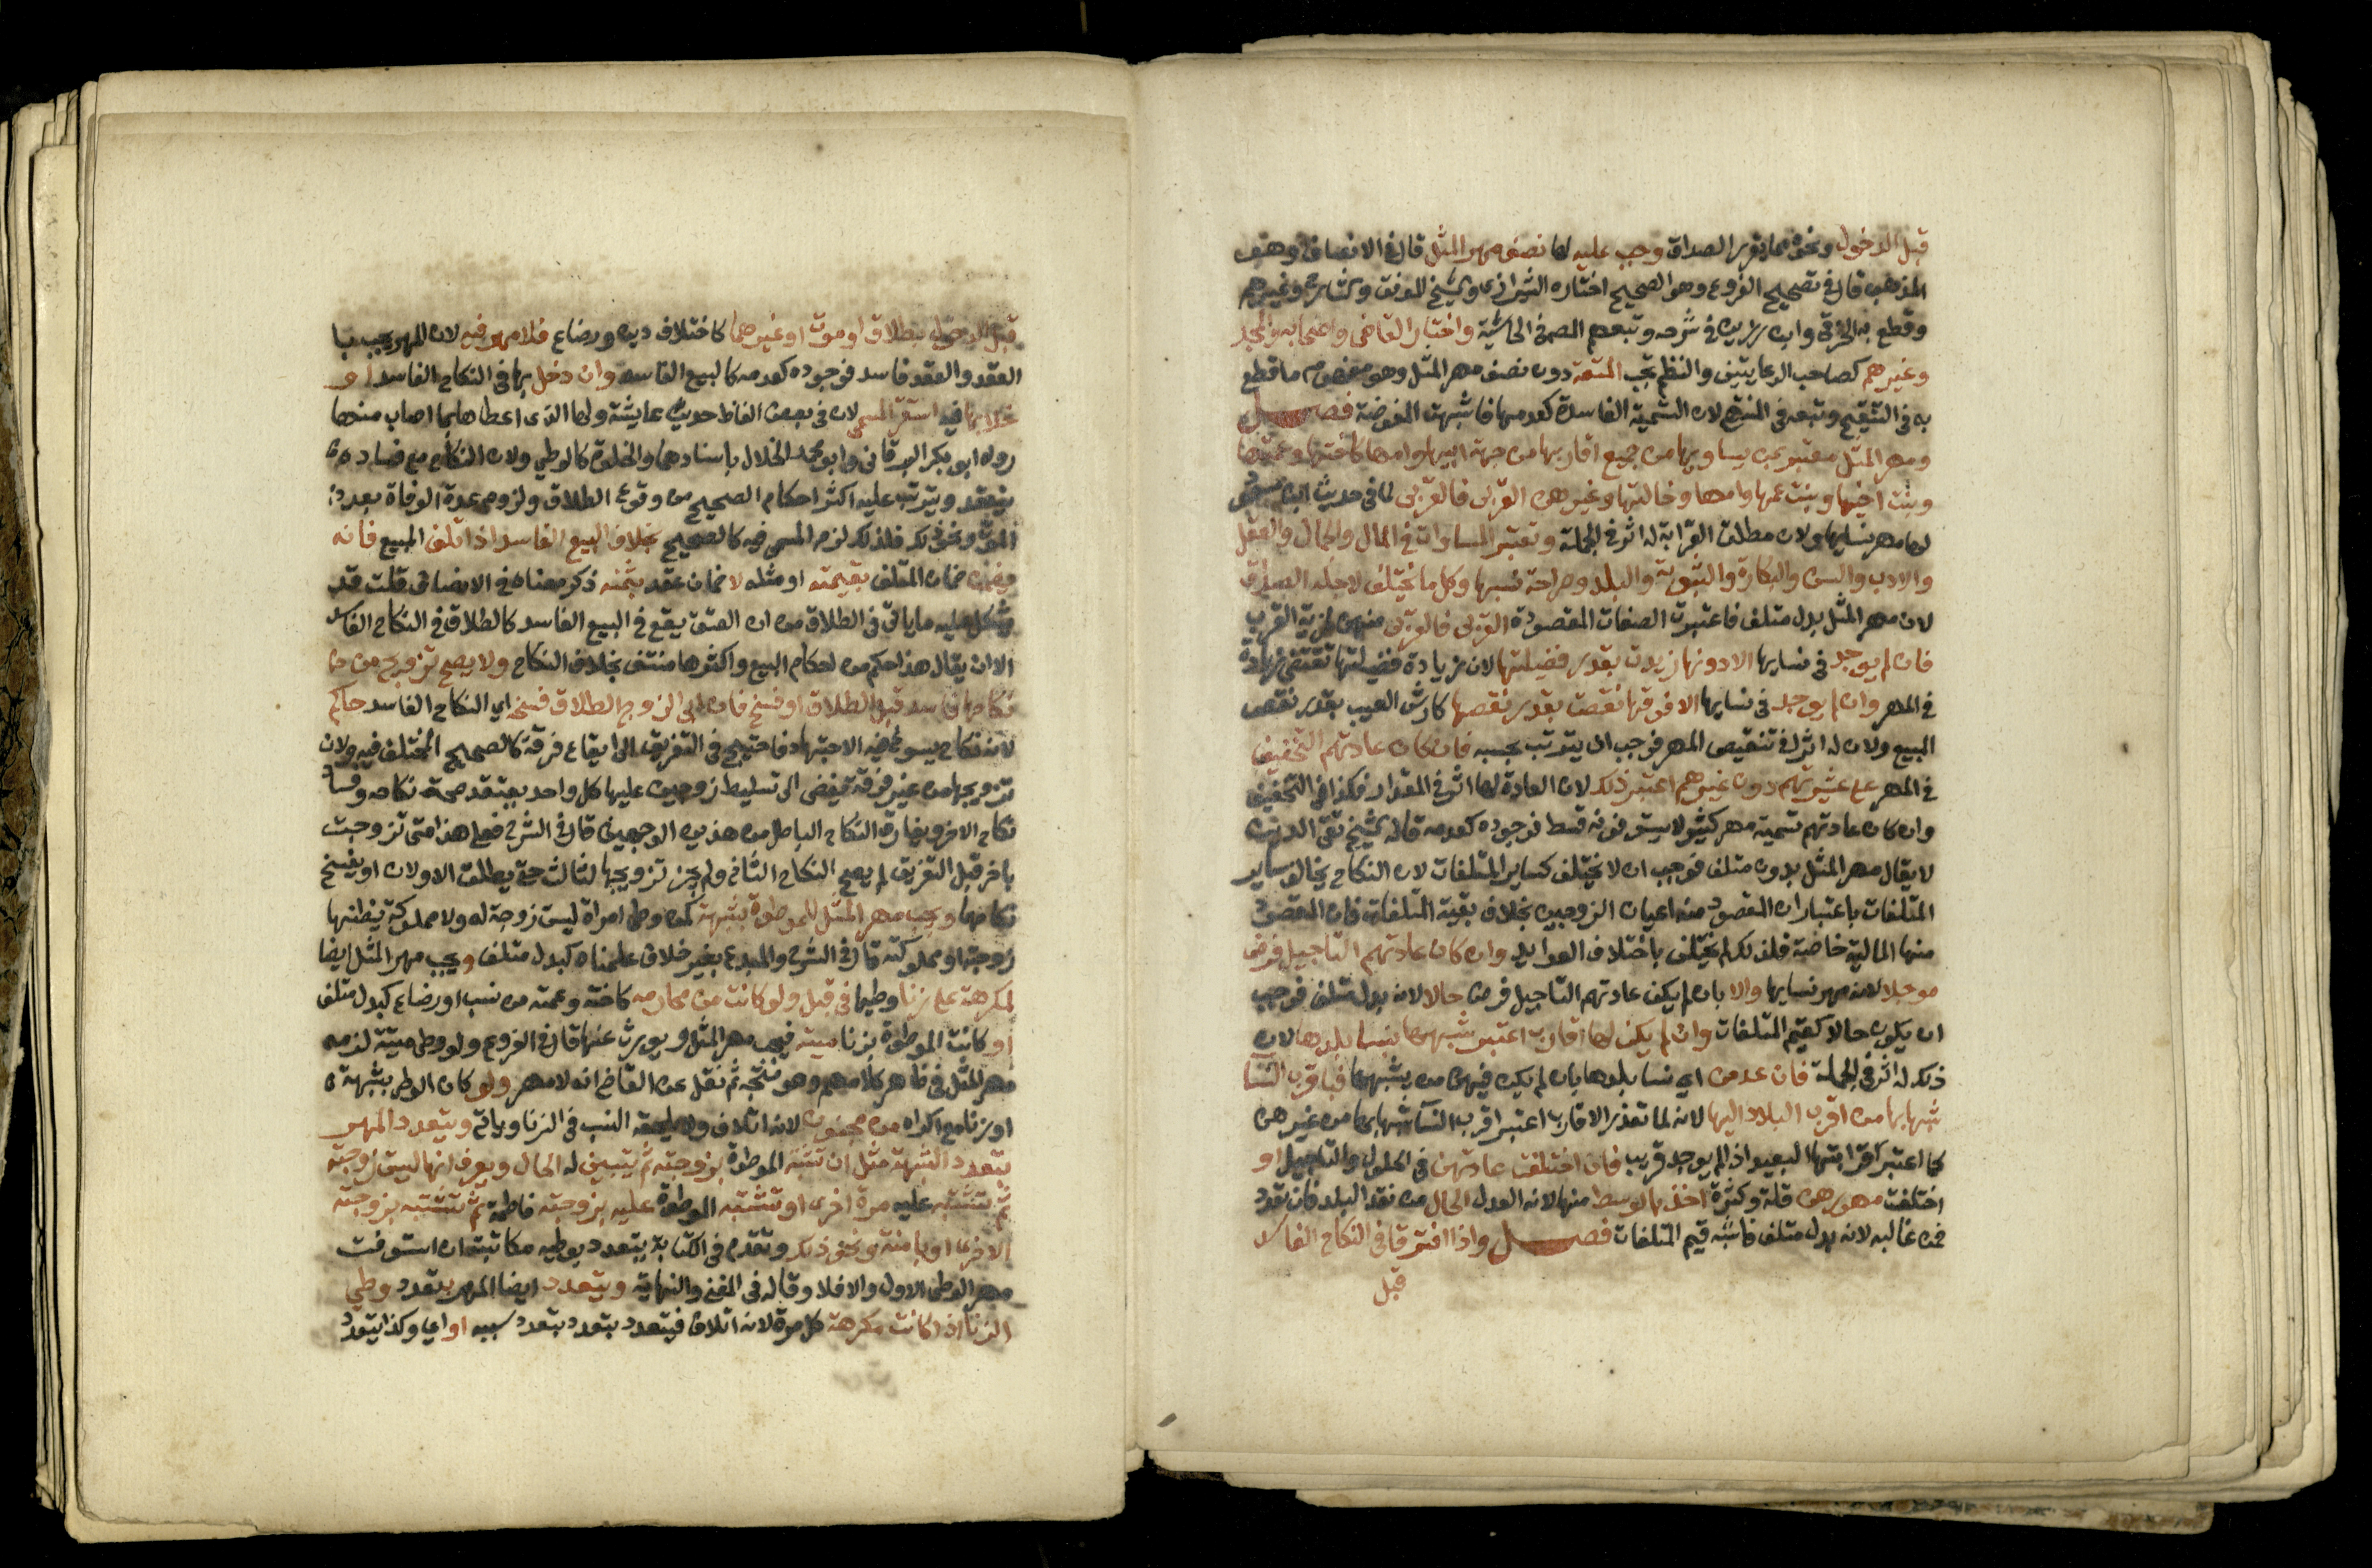 قبل الدخول ونحوه مما يقرر الصداق وجب عليه لها نصف مهر المثل قال في الانصاف وهو
المذهب قال في تصحيح الفروع وهو الصحيح اختاره الشيرازي والشيخ الموفق والشارح وغيرهم
وقطع به الخرقي وابن رزين في شرحه وتبعهم المص في الحاشية واختار القاضي واصحابه والمجد
وغيرهم كصاحب الرعايتين والنظم تجب المتعة دون نصف مهر المثل وهو مفهوم ما قطع
به في التنقيح وتبعه في المنتهى لان التسمية الفاسدة كعدمها فاشبهت المفوضة فصل
ومهر المثل معتبر بمن يساويها من جميع اقاربها من جهة ابيها وامها كاختها وعمتها
وبنت اخيها وبنت عمها وامها وخالتها وغيرهن القربى فالقربى لما في حديث ابن مسعود
لها مهر نسايها ولان مطلق القرابة له اثر في الجملة وتعتبر المساوات في المال والجمال والعقل
والادب والسن والبكارة والثيوبة والبلد وصراحة نسبها وكل ما يختلف لاجله الصداق
لان مهر المثل بدل متلف فاعتبرت الصفات المقصودة القربى فالقربى منهن لمزية القرب
فان لم يوجد في نسايها الا دونها زيدت بقدر فضيلتها لان زيادة فضيلتها تقتضي زيادة
في المهر وان لم يوجد في نسايها الا فوقها نقصت بقدر نقصها كارش العيب بقدر نقص
المبيع ولان له اثرا في تنقيص المهر فوجب ان يترتب بحسبه فان كان عادتهم التخفيف
في المهر على عشيرتهم دون غيرهم اعتبر ذلك لان العادة لها اثر في المقدار فكذا في التخفيف
وان كان عادتهم تسمية مهر كثير لا يستوفونه قط فوجوده كعدمه قاله الشيخ تقي الدين
لا يقال مهر المثل بدون متلف فوجب ان لا يختلف كساير المتلفات لان النكاح يخالف ساير
المتلفات باعتبار ان المقصود منه اعيان الزوجين بخلاف بقية المتلفات فان المقصود
منها المالية خاصة فلذلك لم يختلف باختلاف العوايد وان كان عادتهم التاجيل فرض
موجلا لانه مهر نسايها والا بان لم يكن عادتهم التاجيل فرض حالا لانه بدل متلف فوجب
ان يكون حالا كقيم المتلفات وان لم يكن لها اقارب اعتبر شبهها بنسا بلدها لان
ذلك له اثر في الجملة فان عدمن اي نسا بلدها بان لم يكن فيهن من يشبهها فباقرب النسا
شبها بها من اقرب البلاد اليها لانه لما تعذر الاقارب اعتبر اقرب النسا شبها بها من غيرهن
كما اعتبر اقرابتها البعيد اذا لم يوجد قريب فان اختلفت عادتهن في الحلول والتاجيل او
اختلفت مهورهن قلة وكثرة اخذ بالوسط منها لانه العدل الحال من نقد البلد فان تعدد
فمن غالبه لانه بدل متلف فاشبه قيم المتلفات فصل واذا افترقا في النكاح الفاسد
قبل
قبل الدخول بطلاق او موت او غيرهما كاختلاف دين ورضاع فلا مهر فيه لان المهر يجب با
العقد والعقد فاسد فوجوده كعدمه كالبيع الفاسد وان دخل بها في النكاح الفاسد او
خلا بها فيه استقر المسمى لان في بعض الفاظ حديث عايشة ولها الذي اعطاها بما اصاب منها
رواه ابو بكر البرقاني وابو محمد الخلال باسنادهما والخلوة كالوطي ولان النكاح مع فساده
ينعقد ويترتب عليه اكثر احكام الصحيح من وقوع الطلاق ولزوم عدة الوفاة بعد
الموت ونحو ذلك فلذلك لزم المسمى فيه كالصحيح بخلاف البيع الفاسد اذا تلف المبيع فانه
يضمن ضمان المتلف بقيمته او مثله لا ضمان عقد بثمنه ذكر معناه في الانصاف قلت قد
يشكل عليه ما ياتي في الطلاق من ان العتق يقع في البيع الفاسد كالطلاق في النكاح الفاسد
الا ان يقال هذا حكم من احكام البيع واكثرها منتف بخلاف النكاح ولا يصح تزويج من
نكاحها فاسد قبل الطلاق او فسخ فان ابى الزوج الطلاق فسخه اي النكاح الفاسد حاكم
لانه نكاح يسوغ فيه الاجتهاد فاحتيج في التفريق الى ايقاع فرقة كالصحيح المختلف فيه ولان
تزويجها من غير فرقة يفضي الى تسليط زوجين عليها كل واحد يعتقد صحة نكاحه وفساد
نكاح الاخر ويفارق النكاح الباطل من هذين الوجهين قال في الشرح فعلى هذا متى تزوجت
باخر قبل التفريق لم يصح النكاح الثاني ولم يجز تزويجها لثالث حتى يطلق الاولان او يفسخ
نكاحهما ويجب مهر المثل للموطوة بشبهة كمن وطي امراة ليست زوجة له ولا مملوكة يظنها
زوجته او مملوكته قال في الشرح والمبدع بغير خلاف علمناه كبدل متلف ويجب مهر المثل ايضا
لمكرهة على زنا وطيها في قبل ولو كانت من محارمه كاخته وعمته من نسب او رضاع كبدل متلف
او كانت الموطوة بزنا ميتة فيجب مهر المثل ويورث عنها قال في الفروع ولو وطي ميتة لزمه
مهر المثل في ظاهر كلامهم وهو متجه ثم نقل عن القاضي انه لا مهر ولو كان الوطي بشبهة
او زنا مع اكراه من مجنون لانه اتلاف ولا يلحقه النسب في الزنا وياتي ويتعدد المهر
بتعدد الشبهة مثل ان تشتبه الموطوة بزوجته ثم يتبين له الحال ويعرف انها ليست زوجته
ثم تشتبه عليه مرة اخرى او تشتبه الموطوة عليه بزوجته فاطمة ثم تشتبه بزوجته
الاخرى او بامته ونحو ذلك وتقدم في الكتابة يتعدد بوطيه مكاتبته ان استوفت
مهر الوطي الاول والا فلا وقاله في المغني والنهاية ويتعدد ايضا المهر بتعدد وطي
الزنا اذا كانت مكرهة كل مرة لانه اتلاف فيتعدد بتعدد بتعدد سببه او اي وكذا يتعدد